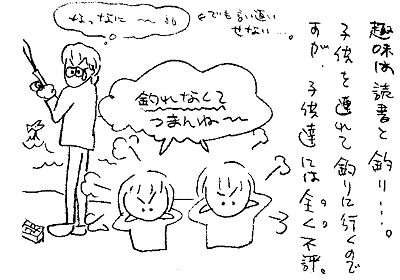 趣味は読書と釣り…。
子供を連れて釣りに行くので
すが、子供達には全く不評。
なっなに〜!!
←でも言い返い
せない…。
釣れなくて
つまんね〜